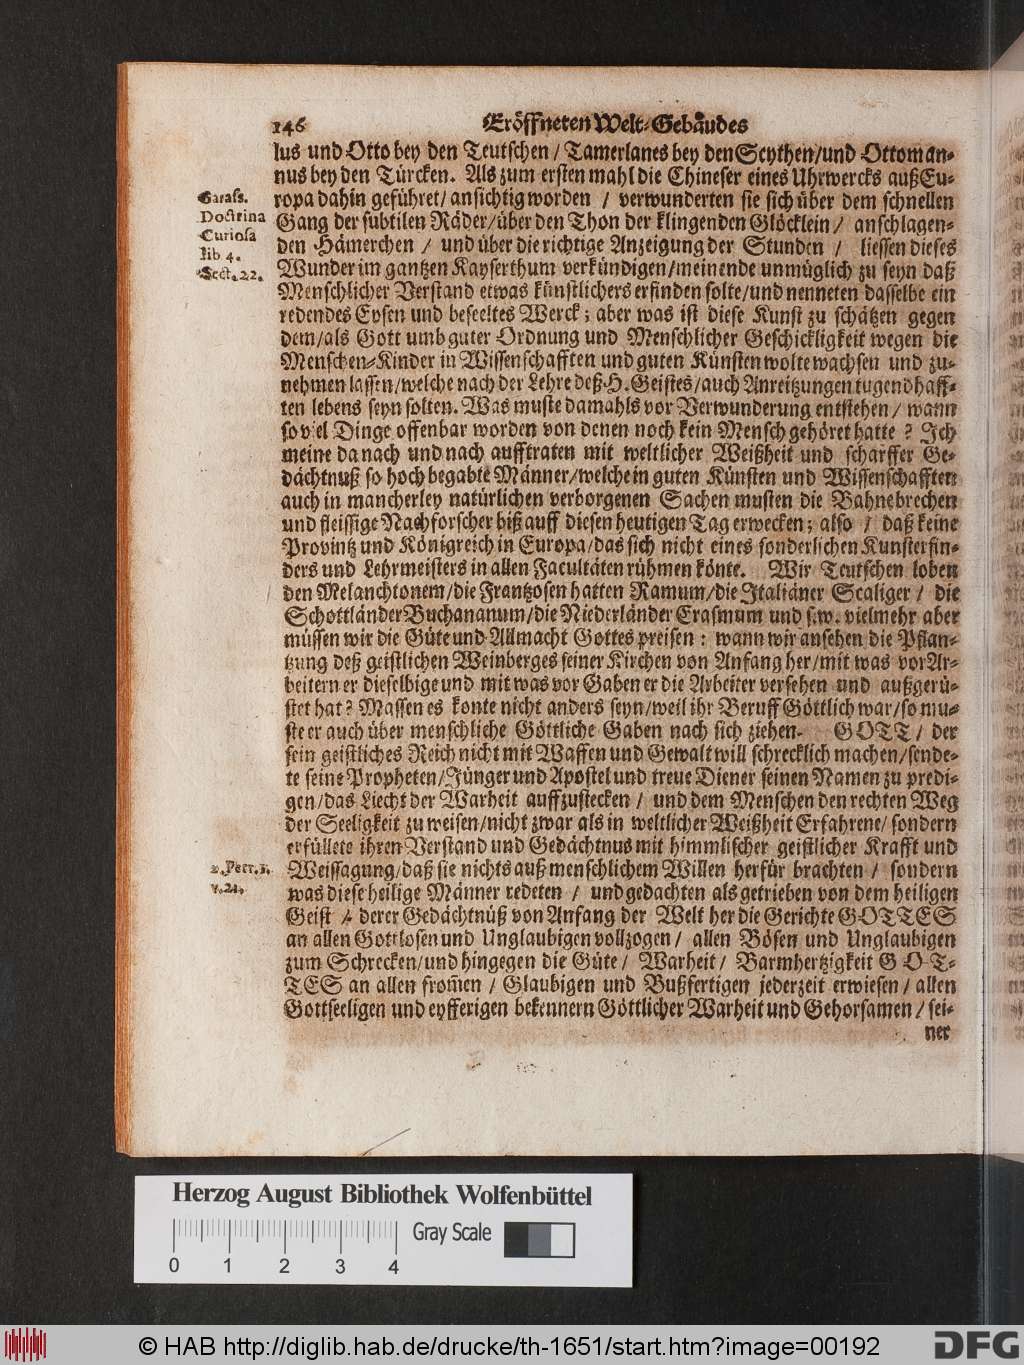 146 Eröffneten Welt-Gebäudes
lus und Otto bey den Teutschen / Tamerlanes bey den Scythen/und Ottoman-
nus bey den Türcken. Als zum ersten mahl die Chineser eines Uhrwercks auß Eu-
ropa dahin geführet/ ansichtig worden / verwunderten sie sich über dem schnellen
Gang der subtilen Räder/über den Thon der klingenden Glöcklein/ anschlagen-
den Hämerchen / und über die richtige Anzeigung der Stunden / liessen dieses
Wunder im gantzen Kayserthum verkündigen/meinende unmüglich zu seyn daß
Menschlicher Verstand etwas künstlichers erfinden solte/und nenneten dasselbe ein
redendes Eysen und beseeltes Werck; aber was ist diese Kunst zu schätzen gegen
dem/als Gott umb guter Ordnung und Menschlicher Geschickligkeit wegen die
Menschen-Kinder in Wissenschafften und guten Künsten wolte wachsen und zu-
nehmen lassen/welche nach der Lehre deß H. Geistes/auch Anreitzungen tugendhaff-
ten lebens seyn solten. Was muste damahls vor Verwunderung entstehen/ wann
so viel Dinge offenbar worden von denen noch kein Mensch gehöret hatte ? Ich
meine da nach und nach aufftraten mit weltlicher Weißheit und scharffer Ge-
dächtnuß so hoch begabte Männer/welche in guten Künsten und Wissenschafften
auch in mancherley natürlichen verborgenen Sachen musten die Bahne brechen
und fleissige Nachforscher biß auff diesen heutigen Tag erwecken; also / daß keine
Provintz und Königreich in Europa/das sich nicht eines sonderlichen Kunsterfin-
ders und Lehrmeisters in allen Facultäten rühmen könte. Wir Teutschen loben
den Melanchtonem/die Frantzosen hatten Ramum/die Italiäner Scaliger / die
Schottländer Buchananum/die Niederländer Erasmum und s.w. vielmehr aber
müssen wir die Güte und Allmacht Gottes preisen : wann wir ansehen die Pflan-
tzung deß geistlichen Weinberges seiner Kirchen von Anfang her/mit was vor Ar-
beitern er dieselbige und mit was vor Gaben er die Arbeiter versehen und außgerü-
stet hat? Massen es konte nicht anders seyn/weil ihr Beruff Göttlich war/so mu-
ste er auch über menschliche Göttliche Gaben nach sich ziehen. GOTT / der
sein geistliches Reich nicht mit Waffen und Gewalt will schrecklich machen/sende-
te seine Propheten/Jünger und Apostel und treue Diener seinen Namen zu predi-
gen/das Liecht der Warheit auffzustecken / und dem Menschen den rechten Weg
der Seeligkeit zu weisen/nicht zwar als in weltlicher Weißheit Erfahrene/ sondern
erfüllete ihren Verstand und Gedächtnus mit himmlischer geistlicher Krafft und
Weissagung/daß sie nichts auß menschlichem Willen herfür brachten / sondern
was diese heilige Männer redeten / und gedachten als getrieben von dem heiligen
Geist / derer Gedächtnüß von Anfang der Welt her die Gerichte GOTTES
an allen Gottlosen und Unglaubigen vollzogen/ allen Bösen und Unglaubigen
zum Schrecken/und hingegen die Güte/ Warheit/ Barmhertzigkeit GOT-
TES an allen from̃en / Glaubigen und Bußfertigen jederzeit erwiesen / allen
Gottseeligen und eyfferigen bekennern Göttlicher Warheit und Gehorsamen / sei-
ner
Garass.
Doctrina
Curiosa
lib 4.
Sect. 22.
2. Petr. 1.
v. 21.
Herzog August Bibliothek Wolfenbüttel
0 1 2 3 4
Gray Scale
© HAB http://diglib.hab.de/drucke/th-1651/start.htm?image=00192
DFG